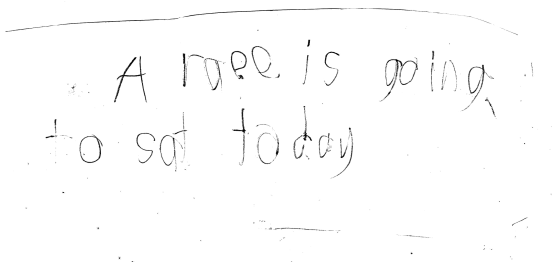 A raee is going
to sat today